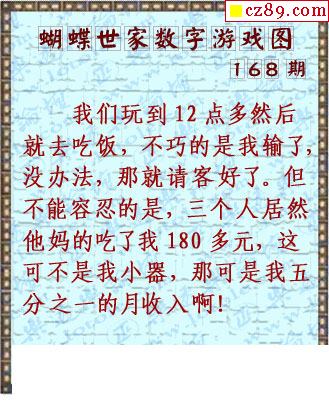 cz89.com
蝴蝶世家数字游戏图
168 期
我们玩到 12 点多然后
就去吃饭，不巧的是我输了，
没办法，那就请客好了。但
不能容忍的是，三个人居然
他妈的吃了我 180 多元，这
可不是我小器，那可是我五
分之一的月收入啊!